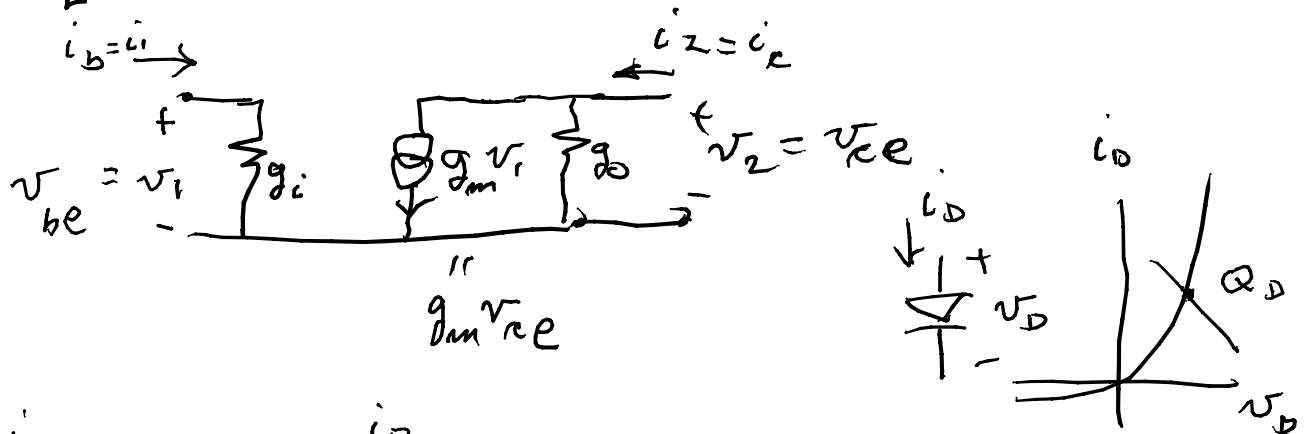 i_b = i_1
i_2 = i_c
+
+
v_be = v_1
g_i
g_m v_1
g_o
v_2 = v_ce
-
-
"
g_m v_ce
i_D
+
v_D
-
i_D
Q_D
v_D